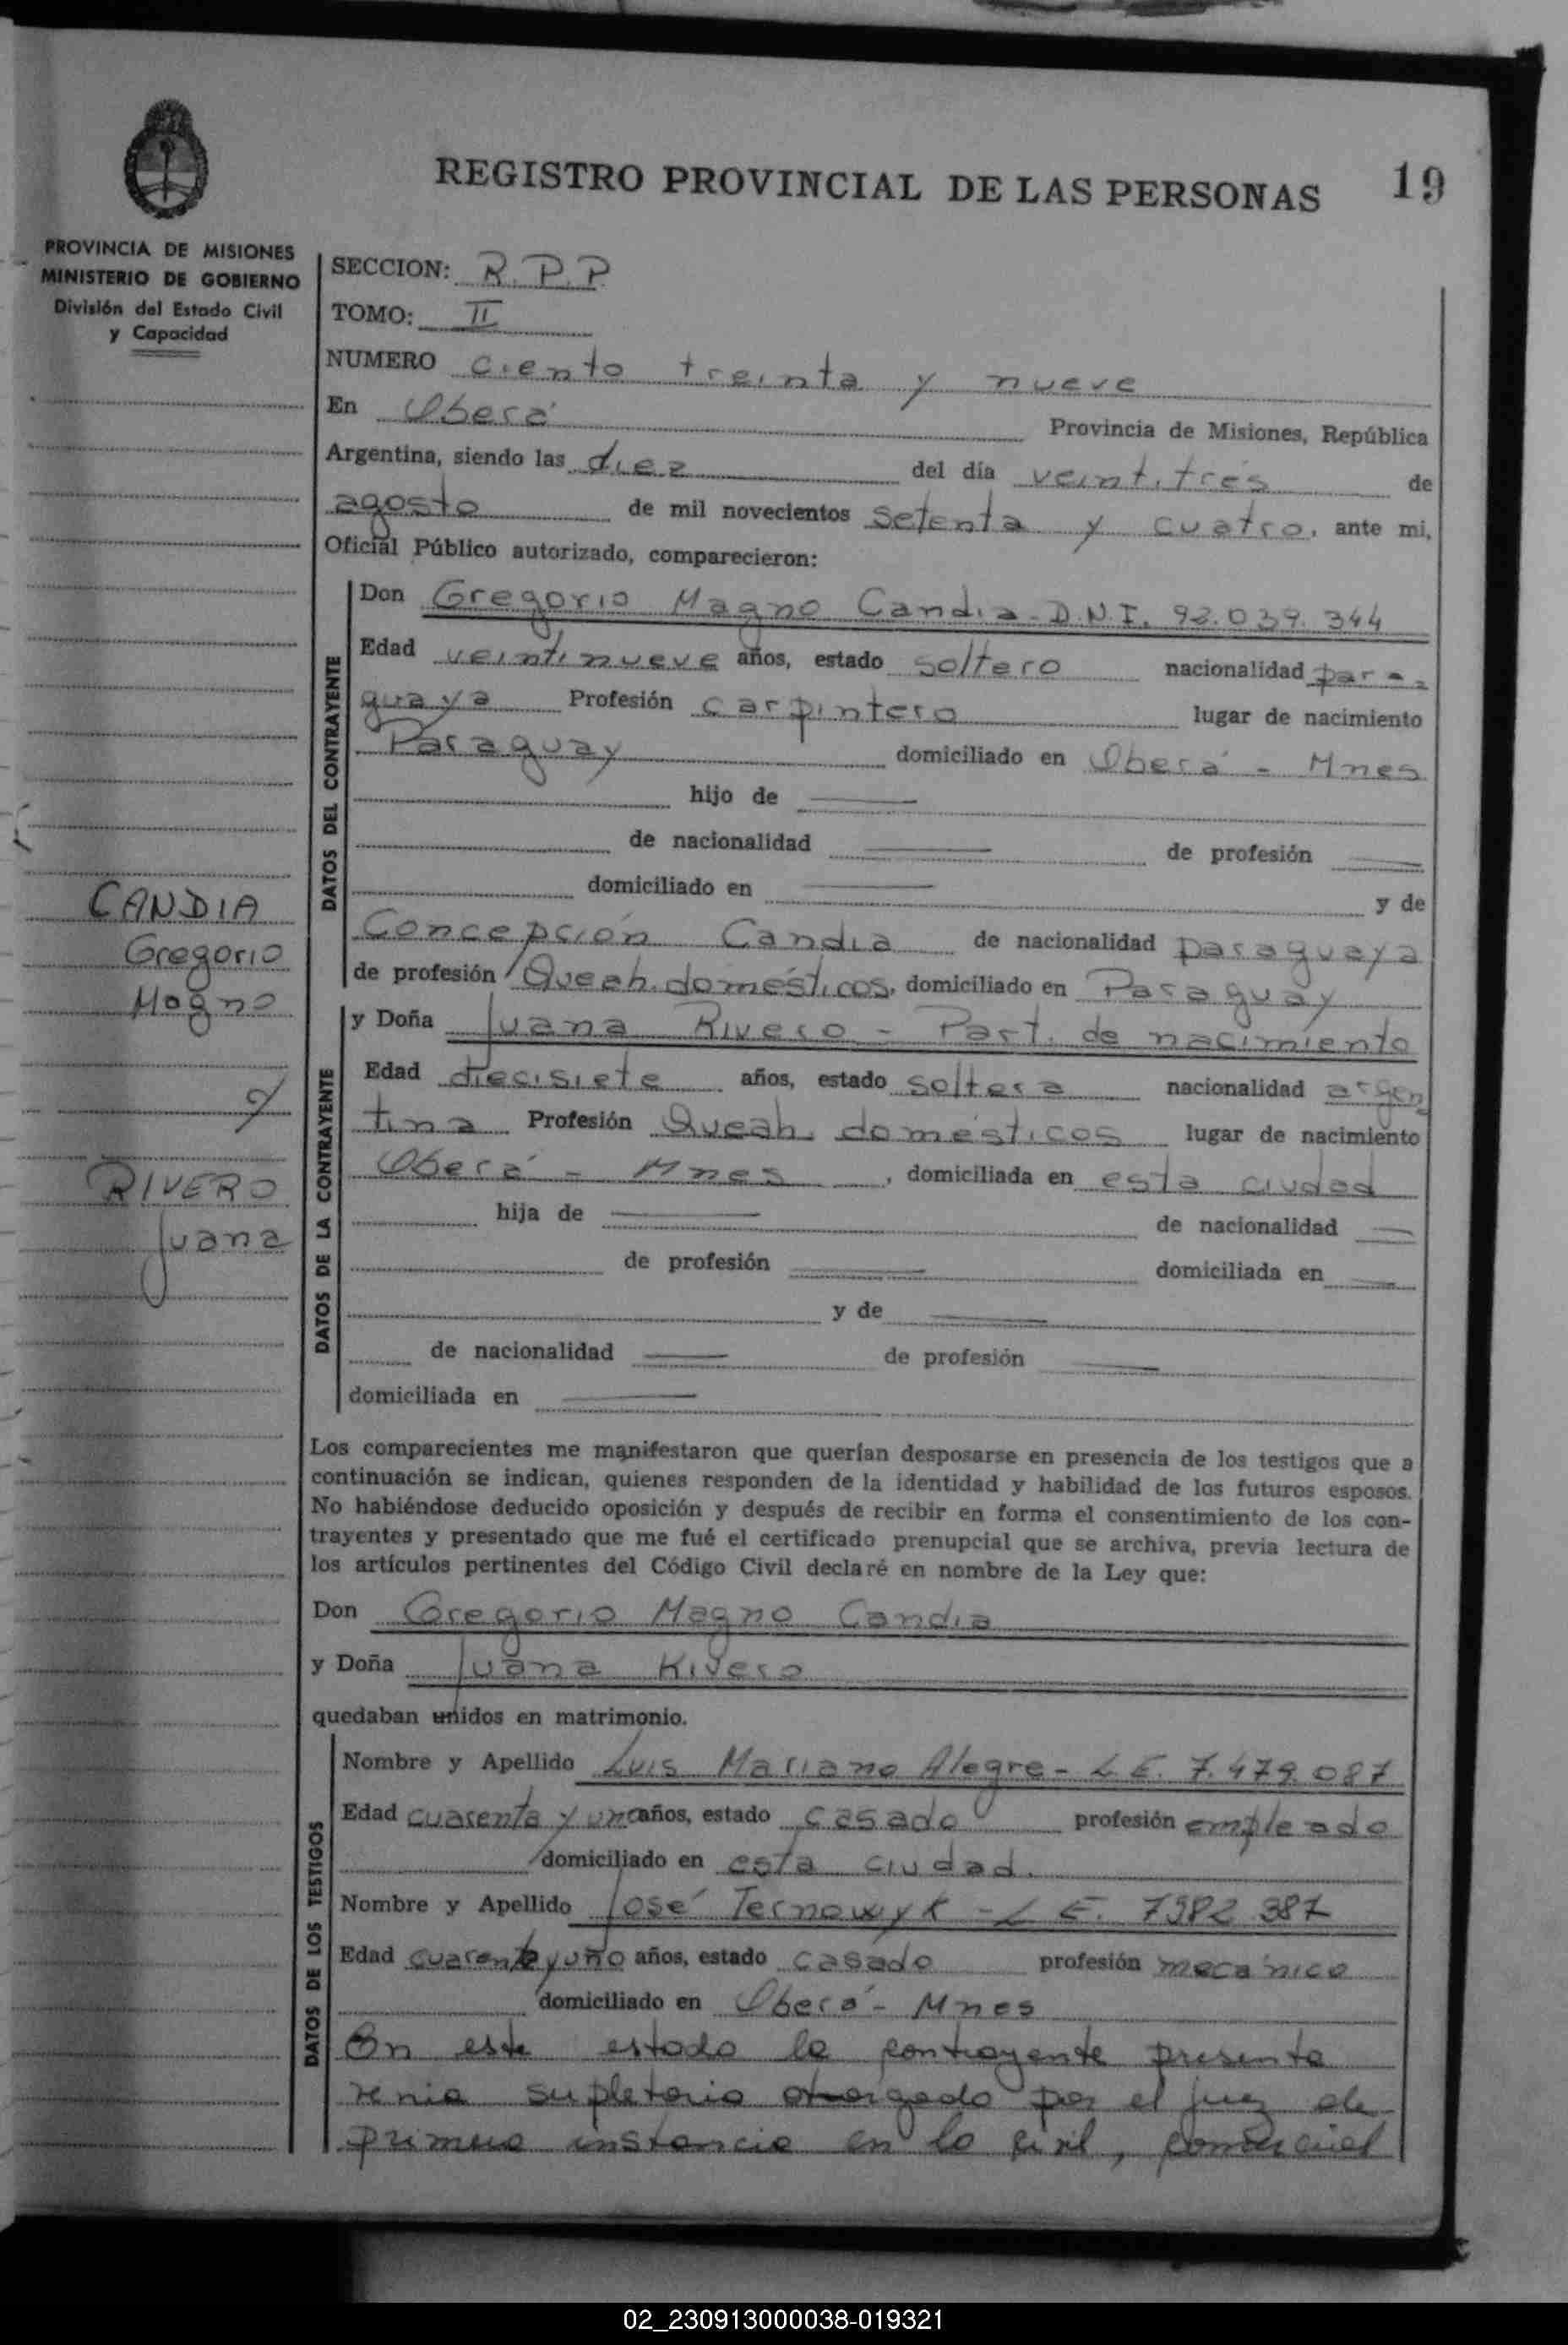 REGISTRO PROVINCIAL DE LAS PERSONAS 19
PROVINCIA DE MISIONES
MINISTERIO DE GOBIERNO
División del Estado Civil
y Capacidad
SECCION: R.P.P.
TOMO: II
NUMERO ciento treinta y nueve
En Oberá Provincia de Misiones, República
Argentina, siendo las diez del día veintitrés de
agosto de mil novecientos setenta y cuatro, ante mi,
Oficial Público autorizado, comparecieron:
DATOS DEL CONTRAYENTE
Don Gregorio Magno Candia - D.N.I. 92.039.344
Edad veintinueve años, estado soltero nacionalidad para-
guaya Profesión carpintero lugar de nacimiento
Paraguay domiciliado en Oberá - Mnes
hijo de
de nacionalidad de profesión
domiciliado en y de
Concepción Candia de nacionalidad paraguaya
de profesión Queah. domésticos, domiciliado en Paraguay
CANDIA
Gregorio
Magno
y
RIVERO
Juana
DATOS DE LA CONTRAYENTE
y Doña Juana Rivero - Part. de nacimiento
Edad diecisiete años, estado soltera nacionalidad argen
tina Profesión Queah. domésticos lugar de nacimiento
Oberá - Mnes, domiciliada en esta ciudad
hija de de nacionalidad
de profesión domiciliada en
y de
de nacionalidad de profesión
domiciliada en
Los comparecientes me manifestaron que querían desposarse en presencia de los testigos que a
continuación se indican, quienes responden de la identidad y habilidad de los futuros esposos.
No habiéndose deducido oposición y después de recibir en forma el consentimiento de los con-
trayentes y presentado que me fué el certificado prenupcial que se archiva, previa lectura de
los artículos pertinentes del Código Civil declaré en nombre de la Ley que:
Don Gregorio Magno Candia
y Doña Juana Rivero
quedaban unidos en matrimonio.
DATOS DE LOS TESTIGOS
Nombre y Apellido Luis Mariano Alegre - L.E. 7.479.087
Edad cuarenta y uno años, estado casado profesión empleado
domiciliado en esta ciudad.
Nombre y Apellido José Ternowyk - L E. 7982 387
Edad cuarenta y uno años, estado casado profesión mecánico
domiciliado en Oberá - Mnes
En este estado la contrayente presenta
venia supletoria otorgada por el juez de
primera instancia en lo civil, comercial
02_230913000038-019321